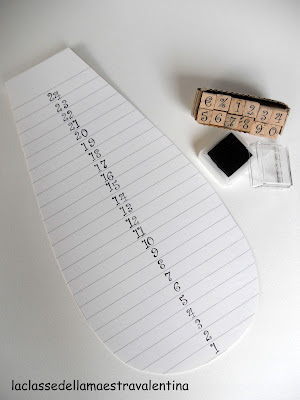 24
23
22
21
20
19
18
17
16
15
14
13
12
11
10
9
8
7
6
5
4
3
2
1
1 2 3
5 6 7 8 9 0
laclassedellamaestravalentina